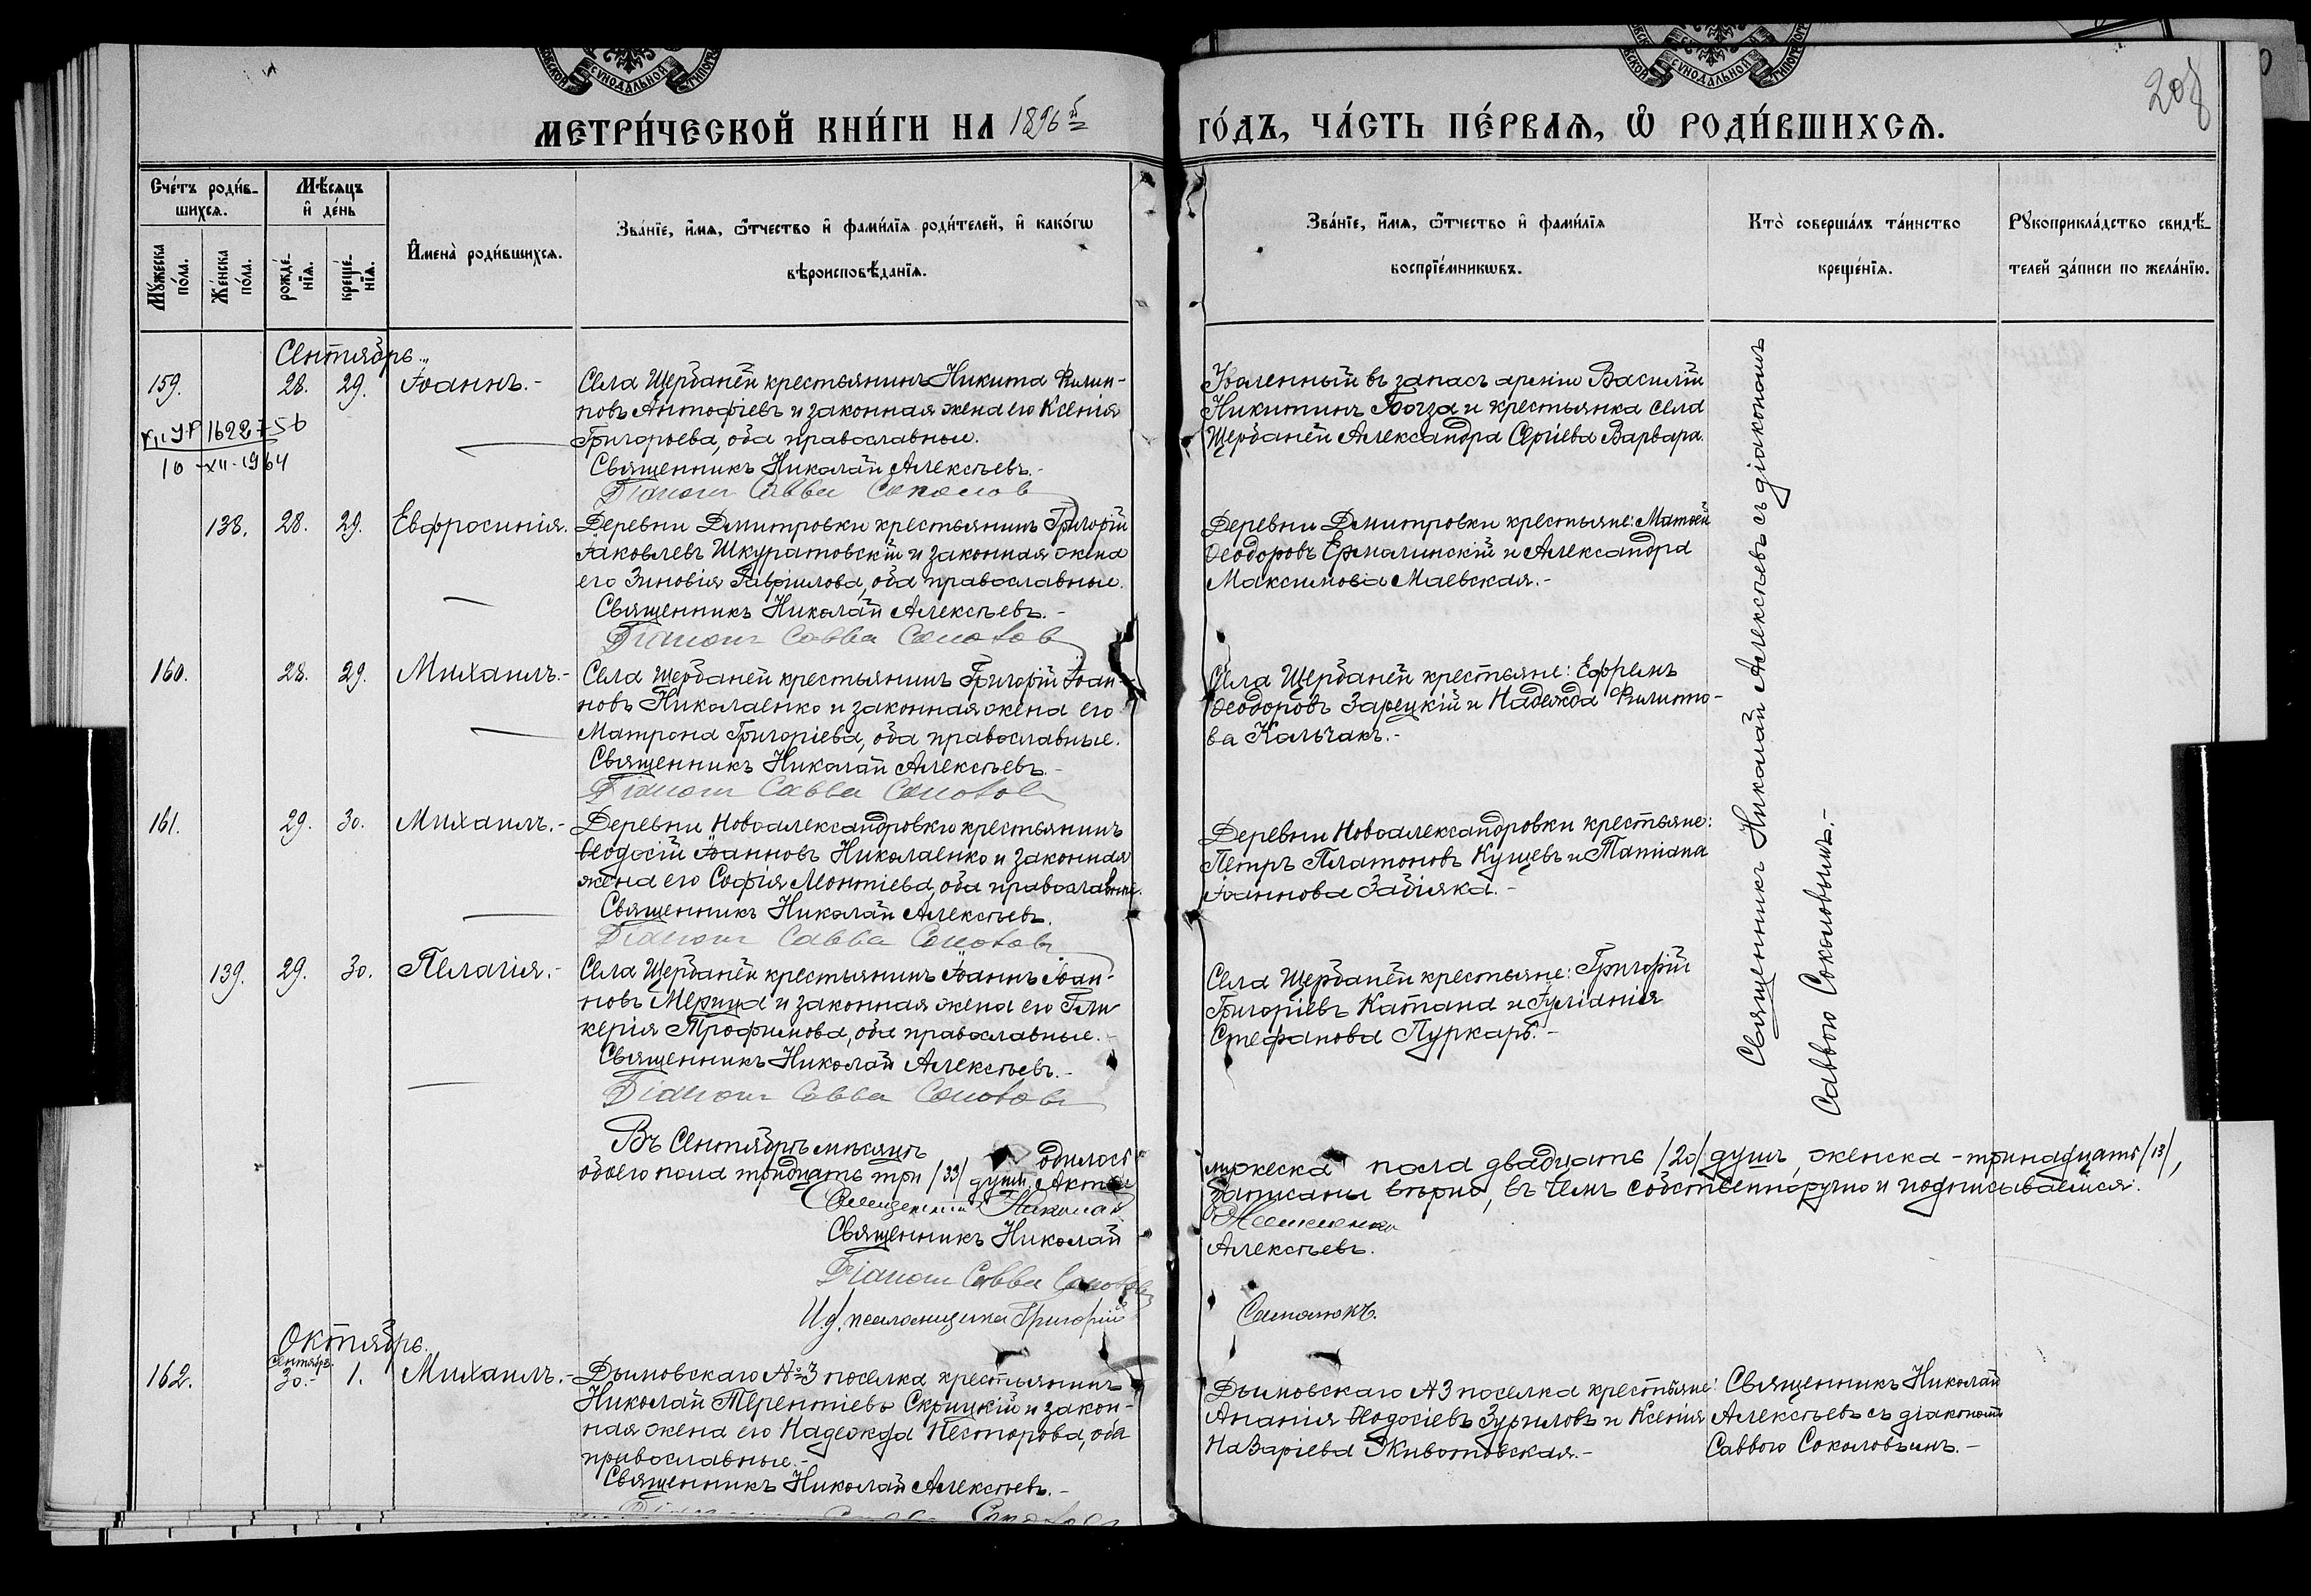 СѴНОДАЛЬНОЙ
СѴНОДАЛЬНОЙ
208
МЕТРИ́ЧЕСКОЙ КНИ́ГИ НА 1896й
ГО́ДЪ, ЧА́СТЬ ПЕ́РВАѦ, Ѿ РОДИ́ВШИХСѦ.
Счéтъ роди́в-
шихсѧ.
Мѣ́сѧцъ
и҆ де́нь
Мꙋ́жеска
по́ла.
Же́нска
по́ла.
рожде́-
нїѧ.
креще́-
нїѧ.
И҆мена̀ роди́вшихсѧ.
Зва́нїе, и҆́мѧ, ѻ҆́тчество и҆ фами́лїѧ роди́телей, и҆ како́гѡ
вѣроисповѣ́данїѧ.
Зва́нїе, и҆́мѧ, ѻ҆́тчество и҆ фами́лїѧ
воспрїе́мникѡвъ.
Кто̀ соверша́лъ та́инство
креще́нїѧ.
Рꙋкоприкла́дство свидѣ́-
телей за́писи по жела́нїю.
Сентябрь.
159. 28. 29. Іоаннъ.-
Села Щербаней крестьянинъ Никита Филип-
повъ Антофіевъ и законная жена его Ксенія
Григорьева, оба православные.
Священникъ Николай Алексѣевъ.-
Діаконъ Савва Соколов
1628756
10-XII-1964
Уволенный въ запасъ арміи Василій
Никитинъ Богза и крестьянка села
Щербаней Александра Сергіева Варвара.
138. 28. 29. Евфросинія.
Деревни Дмитровки крестьянинъ Григорій
Іаковлевъ Шкуратовскій и законная жена
его Зиновія Гавріилова, оба православные.
Священникъ Николай Алексѣевъ.-
Діаконъ Савва Соколов
Деревни Дмитровки крестьяне: Матѳей
Ѳеодоровъ Ермалинскій и Александра
Максимова Маевская.-
160. 28. 29. Михаилъ.-
Села Щербаней крестьянинъ Григорій Іоан-
новъ Николаенко и законная жена его
Матрона Григоріева, оба православные.
Священникъ Николай Алексѣевъ.-
Діаконъ Савва Соколов
Села Щербаней крестьяне: Ефремъ
Ѳеодоровъ Зарецкій и Надежда Филиппо-
ва Кальчакъ.-
161. 29. 30. Михаилъ.-
Деревни Новоалександровки крестьянинъ
Ѳеодосій Іоанновъ Николаенко и законная
жена его Софія Леонтіева, оба православные.
Священникъ Николай Алексѣевъ.
Діаконъ Савва Соколовъ
Деревни Новоалександровки крестьяне:
Петръ Платоновъ Кущевъ и Татіана
Іоаннова Забіяка.-
139. 29. 30. Пелагія.-
Села Щербаней крестьянинъ Іоаннъ Іоан-
новъ Мерица и законная жена его Гли
керія Трофимова, оба православные.-
Священникъ Николай Алексѣевъ.-
Діаконъ Савва Соколовъ
Села Щербаней крестьяне: Григорій
Григоріевъ Катана и Іуліанія
Стефанова Пуркаръ.-
Священникъ Николай Алексѣевъ съ діакономъ
Саввою Соколовымъ.-
Въ Сентябрѣ мѣсяцѣ одилось
обоего пола тридцать три /33/ душъ. Акты
мужеска пола двадцать /20/ душъ, женска - тринадцать /13/,
записаны вѣрно, въ чемъ собственноручно и подписываемся.
Священникъ Николай
Священникъ Николай
Алексѣевъ.
Діаконъ Савва Соколовъ
И.д. псаломщика Григорій
Самолюкъ.
Октябрь.
162. Сентября 30.- 1. Михаилъ.-
Дымовскаго №3 поселка крестьянинъ
Николай Терентіевъ Скрицкій и закон-
ная жена его Надежда Несторова, оба
православные.-
Священникъ Николай Алексѣевъ.-
Дымовскаго №3 поселка крестьяне:
Ананія Ѳеодосіевъ Зуриловъ и Ксенія
Назаріева Животовская.-
Священникъ Николай
Алексѣевъ съ діакономъ
Саввою Соколовымъ.-